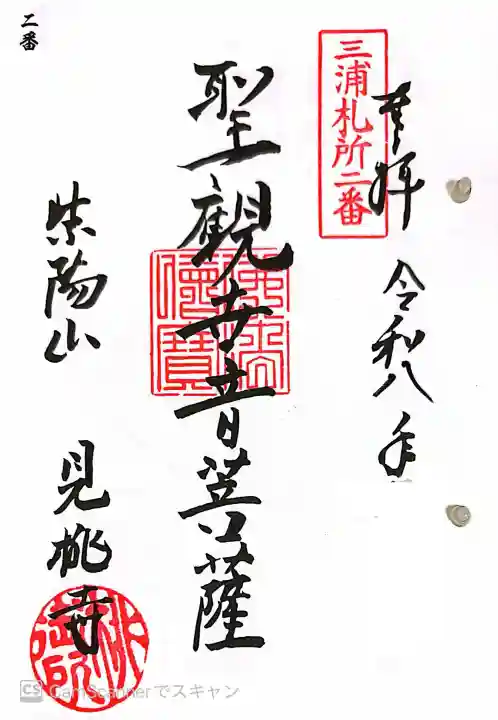 奉拝 令和八年
三浦札所二番
聖観世音菩薩
佛法僧寶
紫陽山 見桃寺
二番
CS CamScannerでスキャン